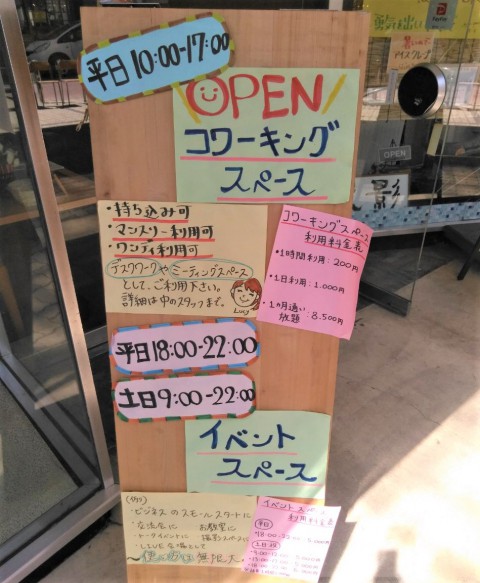 平日10:00-17:00
OPEN
コワーキング
スペース
・持ち込み可
・マンスリー利用可
・ワンディ利用可
デスクワークやミーティングスペース
として、ご利用下さい。
詳細は中のスタッフまで。
Lucy
コワーキングスペース
利用料金表
・1時間利用:200円
・1日利用:1.000円
・1ヵ月通い
放題:8.500円
平日18:00-22:00
土日9:00-22:00
イベント
スペース
・ビジネスのスモールスタートに
・交流会に お教室に
・トークイベントに 撮影スペースに
・LIVE会場として
無限大
イベントスペース
利用料金表
平日
OPEN
アイスクレープ